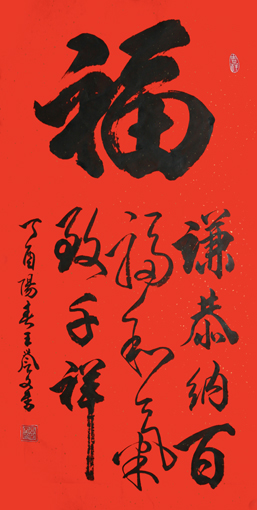 福
谦恭纳百
福和气
致千祥
丁酉阳春王登文书